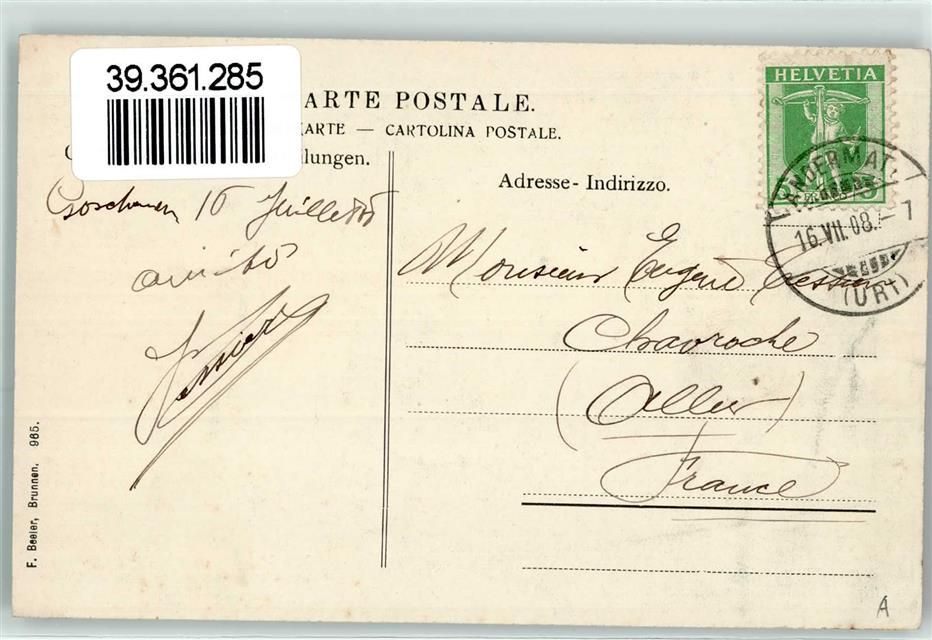 39.361.285
ARTE POSTALE.
KARTE — CARTOLINA POSTALE.
lungen.
Adresse - Indirizzo.
HELVETIA
5
ANDERMATT
16.VII.08.-7
(URI)
Goschenen 16 Juillet
amitiés
Tessier
Monsieur Eugène Tessier
Chavroche
(Allier)
France
F. Beeler, Brunnen. 965.
A